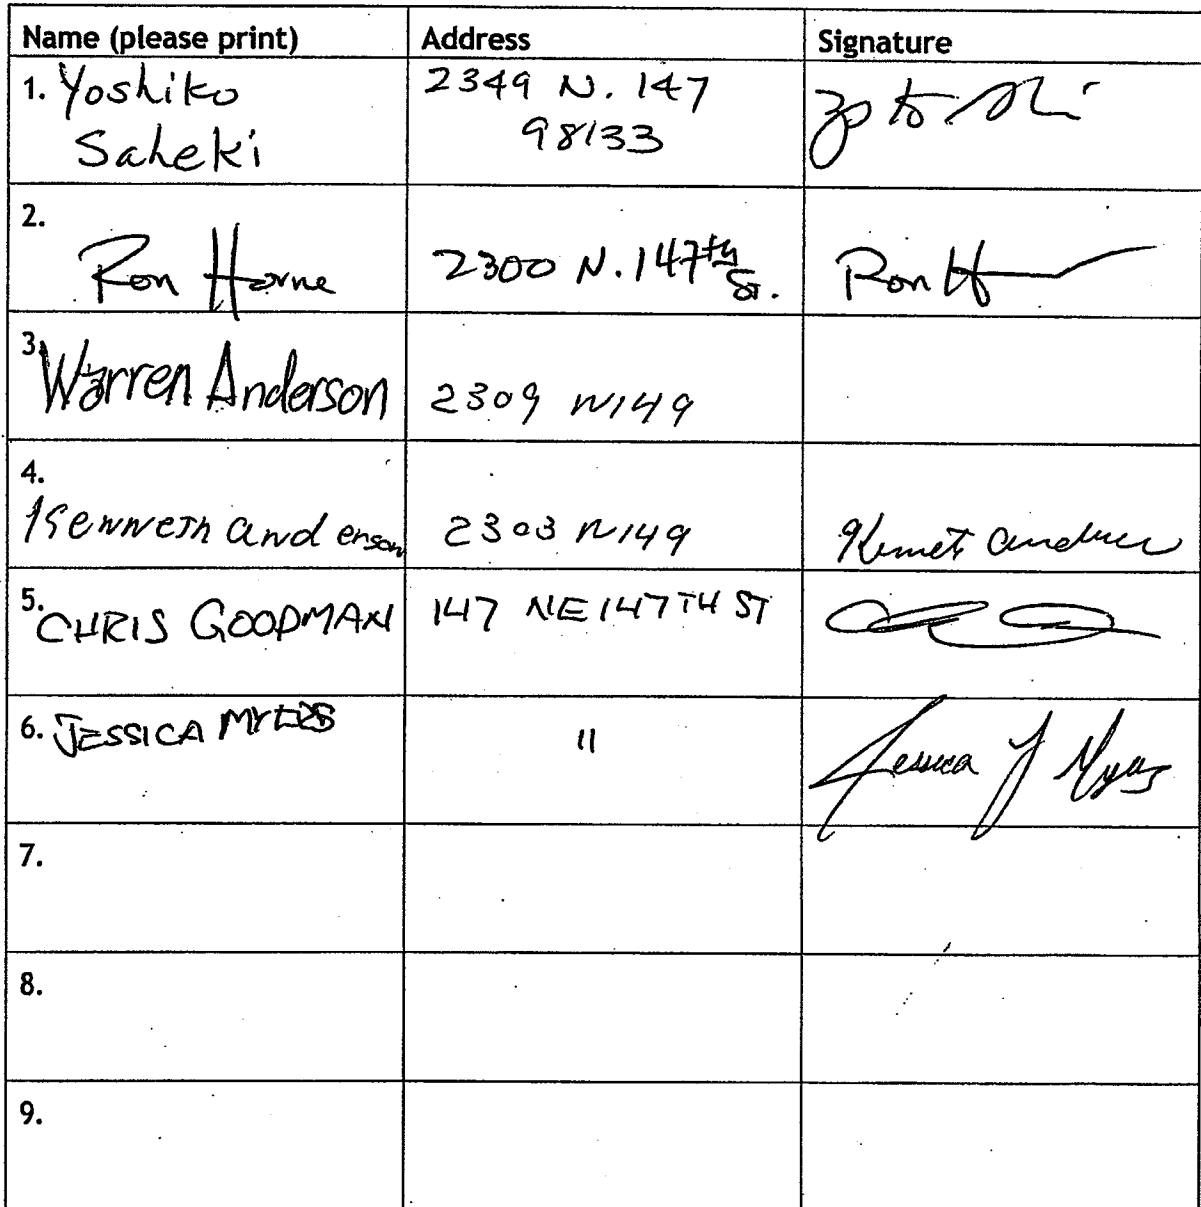 Name (please print) Address Signature
1. Yoshiko 2349 N. 147
Saheki 98133
2.
Ron Horne 2300 N. 147th St. Ron H
3.
Warren Anderson 2309 N149
4.
Kenneth anderson 2303 N149 Kenneth
5. CHRIS GOODMAN 147 NE 147TH ST
6. JESSICA MYERS " Jessica J Myers
7.
8.
9.